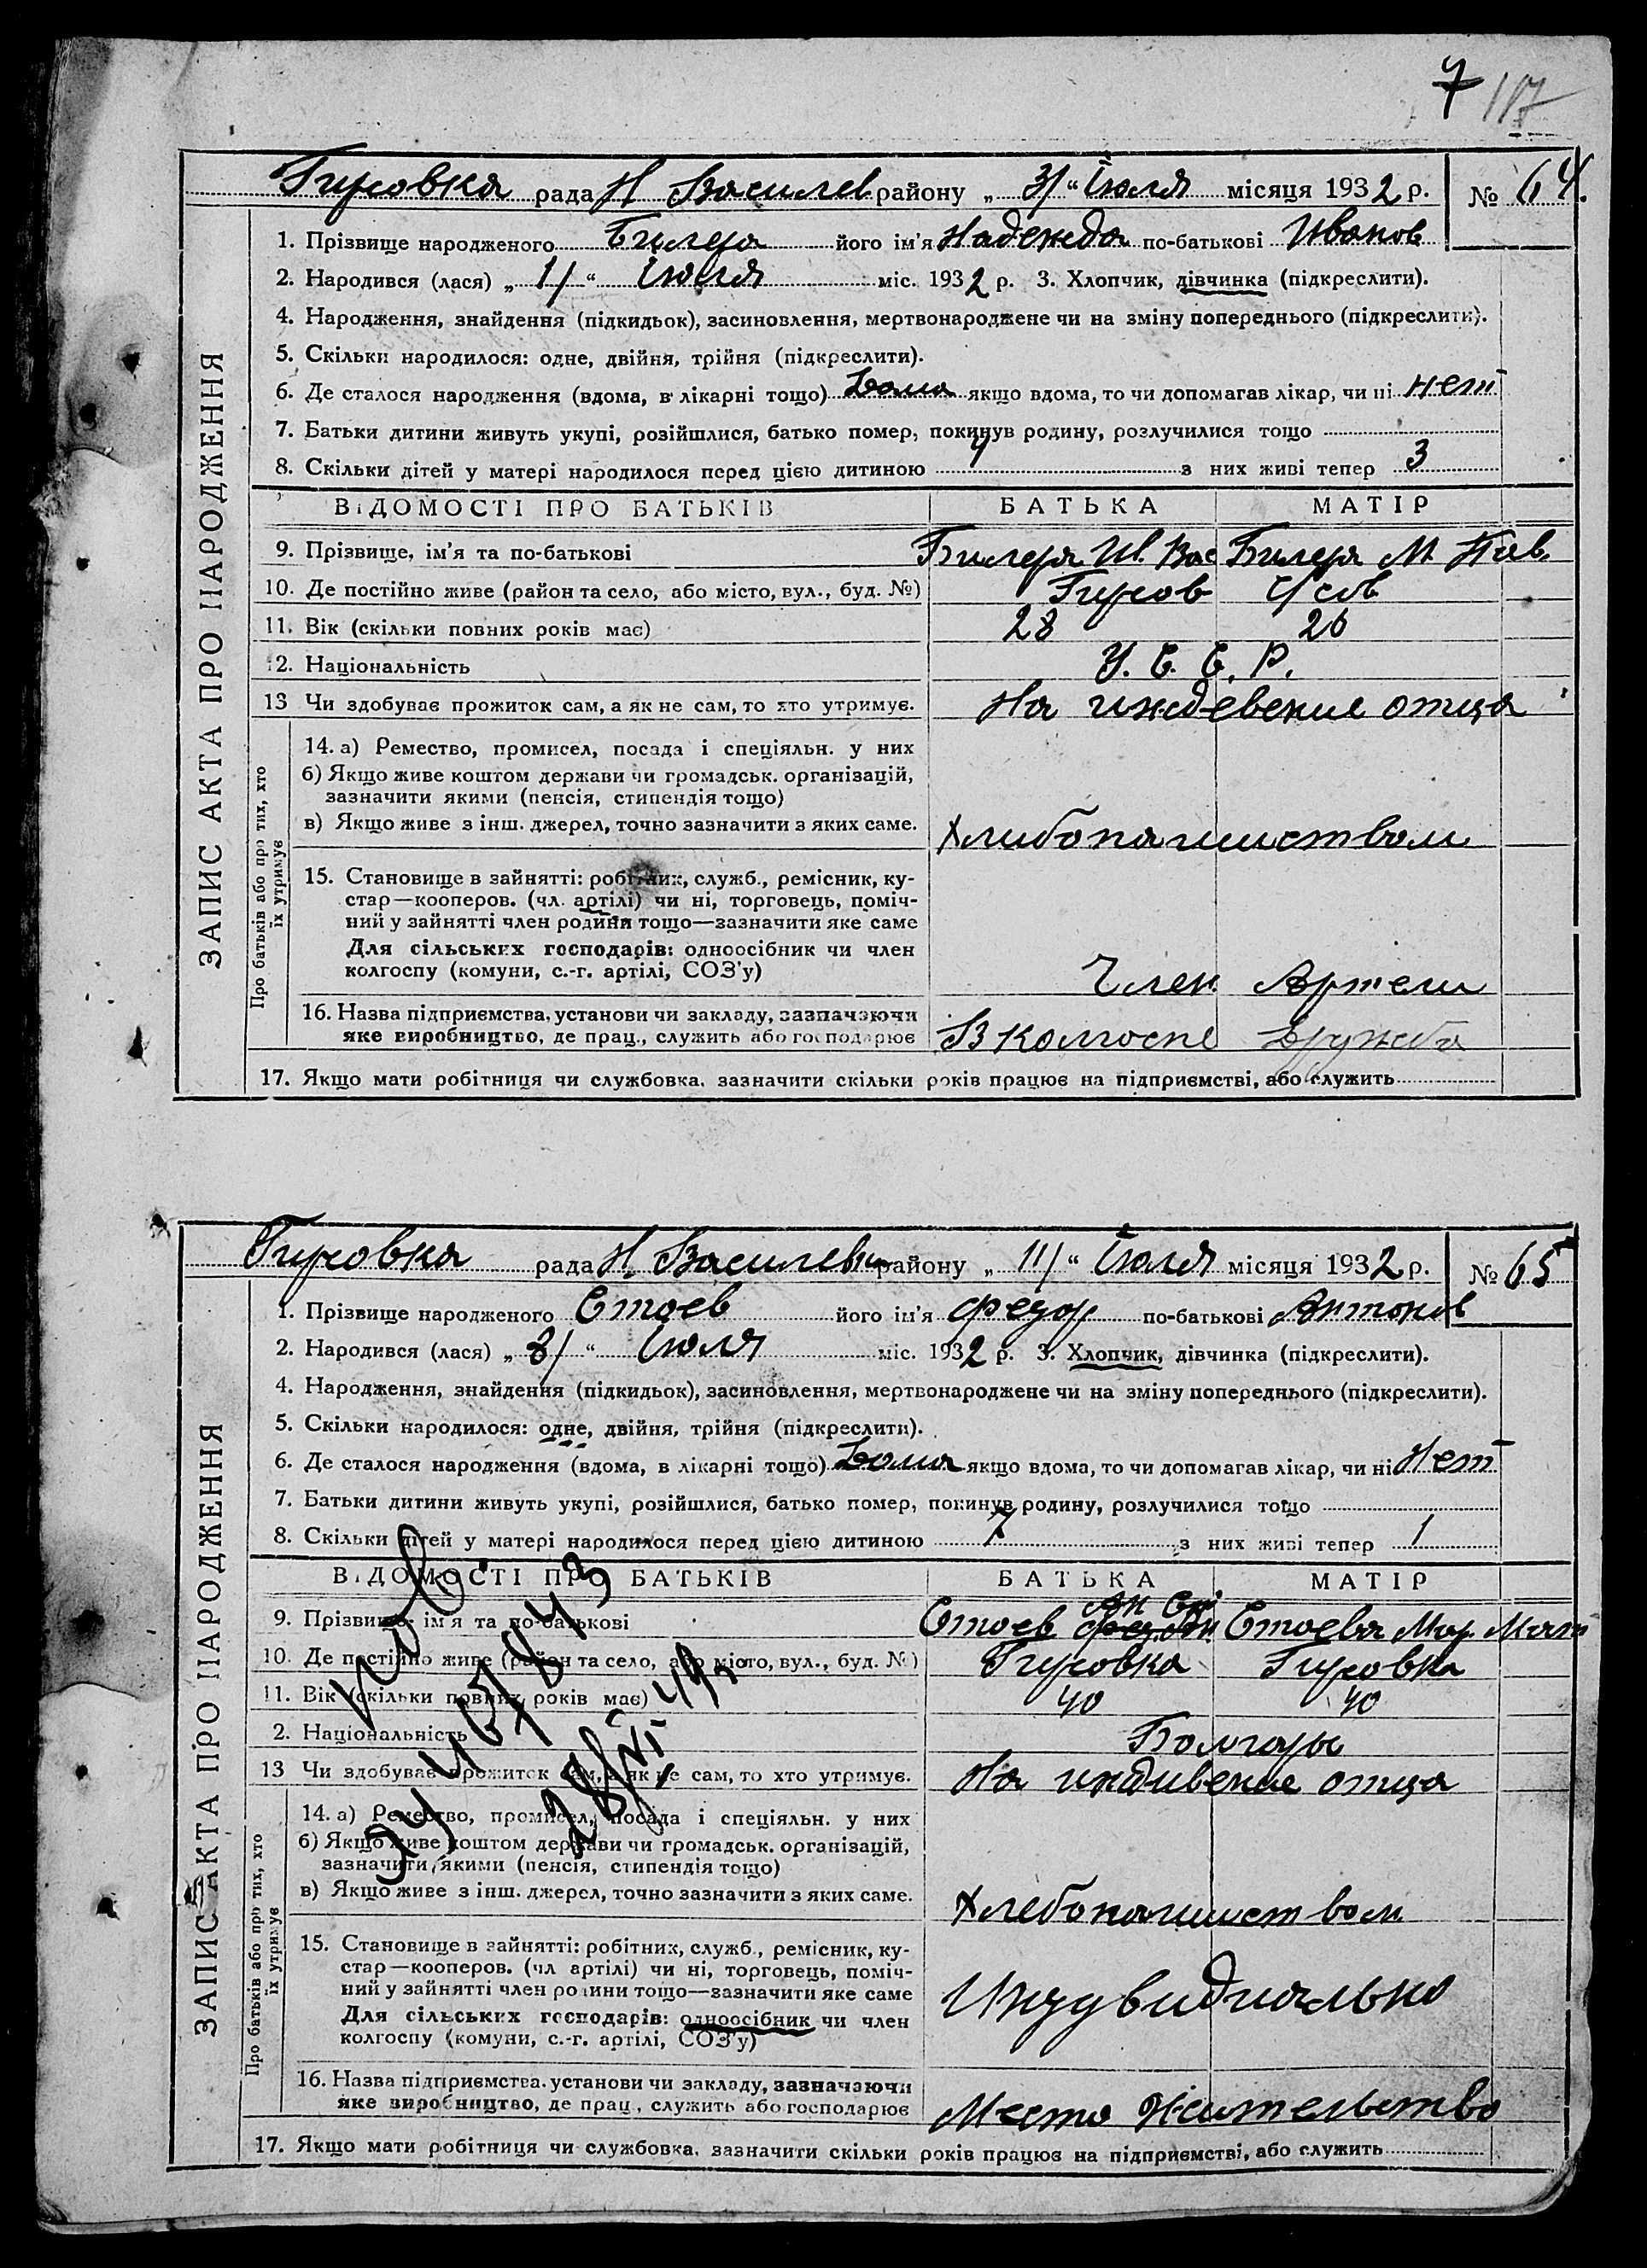 7 117
Гирсовка рада Н Василев району „ 3/ “ Июля місяця 1932 р. № 64.
ЗАПИС АКТА ПРО НАРОДЖЕННЯ
1. Прізвище народженого Билера його ім’я Надежда по-батькові Иванов
2. Народився (лася) „ 1/ “ Июля міс. 1932 р. 3. Хлопчик, дівчинка (підкреслити).
4. Народження, знайдення (підкидьок), засиновлення, мертвонароджене чи на зміну попереднього (підкреслити).
5. Скільки народилося: одне, двійня, трійня (підкреслити).
6. Де сталося народження (вдома, в лікарні тощо) Дома якщо вдома, то чи допомагав лікар, чи ні нет
7. Батьки дитини живуть укупі, розійшлися, батько помер, покинув родину, розлучилися тощо
8. Скільки дітей у матері народилося перед цією дитиною 4 з них живі тепер 3
ВІДОМОСТІ ПРО БАТЬКІВ БАТЬКА МАТІР
9. Прізвище, ім’я та по-батькові Билера Ив. Вас Билера М Пав.
10. Де постійно живе (район та село, або місто, вул., буд. №) Гирсов
11. Вік (скільки повних років має) 28 26
12. Національність У. С. С. Р.
13 Чи здобуває прожиток сам, а як не сам, то хто утримує. На иждевение отца
Про батьків або про тих, хто їх утримує
14. а) Ремество, промисел, посада і спеціяльн. у них
б) Якщо живе коштом держави чи громадськ. організацій,
зазначити якими (пенсія, стипендія тощо)
в) Якщо живе з інш. джерел, точно зазначити з яких саме. Хлибопашеством
15. Становище в зайнятті: робітник, служб., ремісник, ку-
стар—кооперов. (чл. артілі) чи ні, торговець, поміч-
ний у зайнятті член родини тощо—зазначити яке саме
Для сільських господарів: одноосібник чи член
колгоспу (комуни, с.-г. артілі, СОЗ’у) Член Артели
16. Назва підприємства, установи чи закладу, зазначаючи
яке виробництво, де прац., служить або господарює В колгоспе Дружба
17. Якщо мати робітниця чи службовка, зазначити скільки років працює на підприємстві, або служить
Гирсовка рада Н. Василевки району „ 11/ “ Июля місяця 1932 р. № 65
ЗАПИС АКТА ПРО НАРОДЖЕННЯ
1. Прізвище народженого Стоев його ім’я Федор по-батькові Антонов
2. Народився (лася) „ 8/ “ Июля міс. 1932 р. 3. Хлопчик, дівчинка (підкреслити).
4. Народження, знайдення (підкидьок), засиновлення, мертвонароджене чи на зміну попереднього (підкреслити).
5. Скільки народилося: одне, двійня, трійня (підкреслити).
6. Де сталося народження (вдома, в лікарні тощо) Дома якщо вдома, то чи допомагав лікар, чи ні Нет
7. Батьки дитини живуть укупі, розійшлися, батько помер, покинув родину, розлучилися тощо
8. Скільки дітей у матері народилося перед цією дитиною 7 з них живі тепер 1
ВІДОМОСТІ ПРО БАТЬКІВ БАТЬКА МАТІР
9. Прізвище, ім’я та по-батькові Стоев Стоева Мар. Мат
10. Де постійно живе (район та село, або місто, вул., буд. №) Гирсовка Гирсовка
11. Вік (скільки повних років має) 40 40
2. Національність Болгары
13 Чи здобуває прожиток сам, а як не сам, то хто утримує. На индивение отца
Про батьків або про тих, хто їх утримує
14. а) Ремество, промисел, посада і спеціяльн. у них
б) Якщо живе коштом держави чи громадськ. організацій,
зазначити якими (пенсія, стипендія тощо)
в) Якщо живе з інш. джерел, точно зазначити з яких саме. Хлебопашеством
15. Становище в зайнятті: робітник, служб., ремісник, ку-
стар—кооперов. (чл артілі) чи ні, торговець, поміч-
ний у зайнятті член родини тощо—зазначити яке саме
Для сільських господарів: одноосібник чи член
колгоспу (комуни, с.-г. артілі, СОЗ’у) Индувидиально
16. Назва підприємства, установи чи закладу, зазначаючи
яке виробництво, де прац., служить або господарює Место Жительство
17. Якщо мати робітниця чи службовка, зазначити скільки років працює на підприємстві, або служить